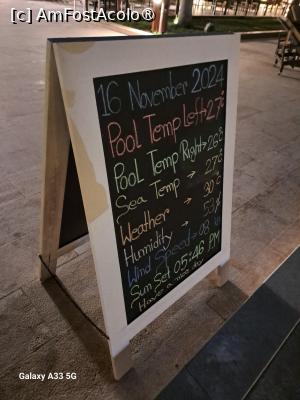 [c] AmFostAcolo®
16 November 2024
Pool Temp Left→27°c
Pool Temp Right→26°c
Sea Temp → 27°c
Weather → 30°c
Humidity → 53%
Wind Speed→08
Sun Set 05:46 PM
Have a nice day
Galaxy A33 5G